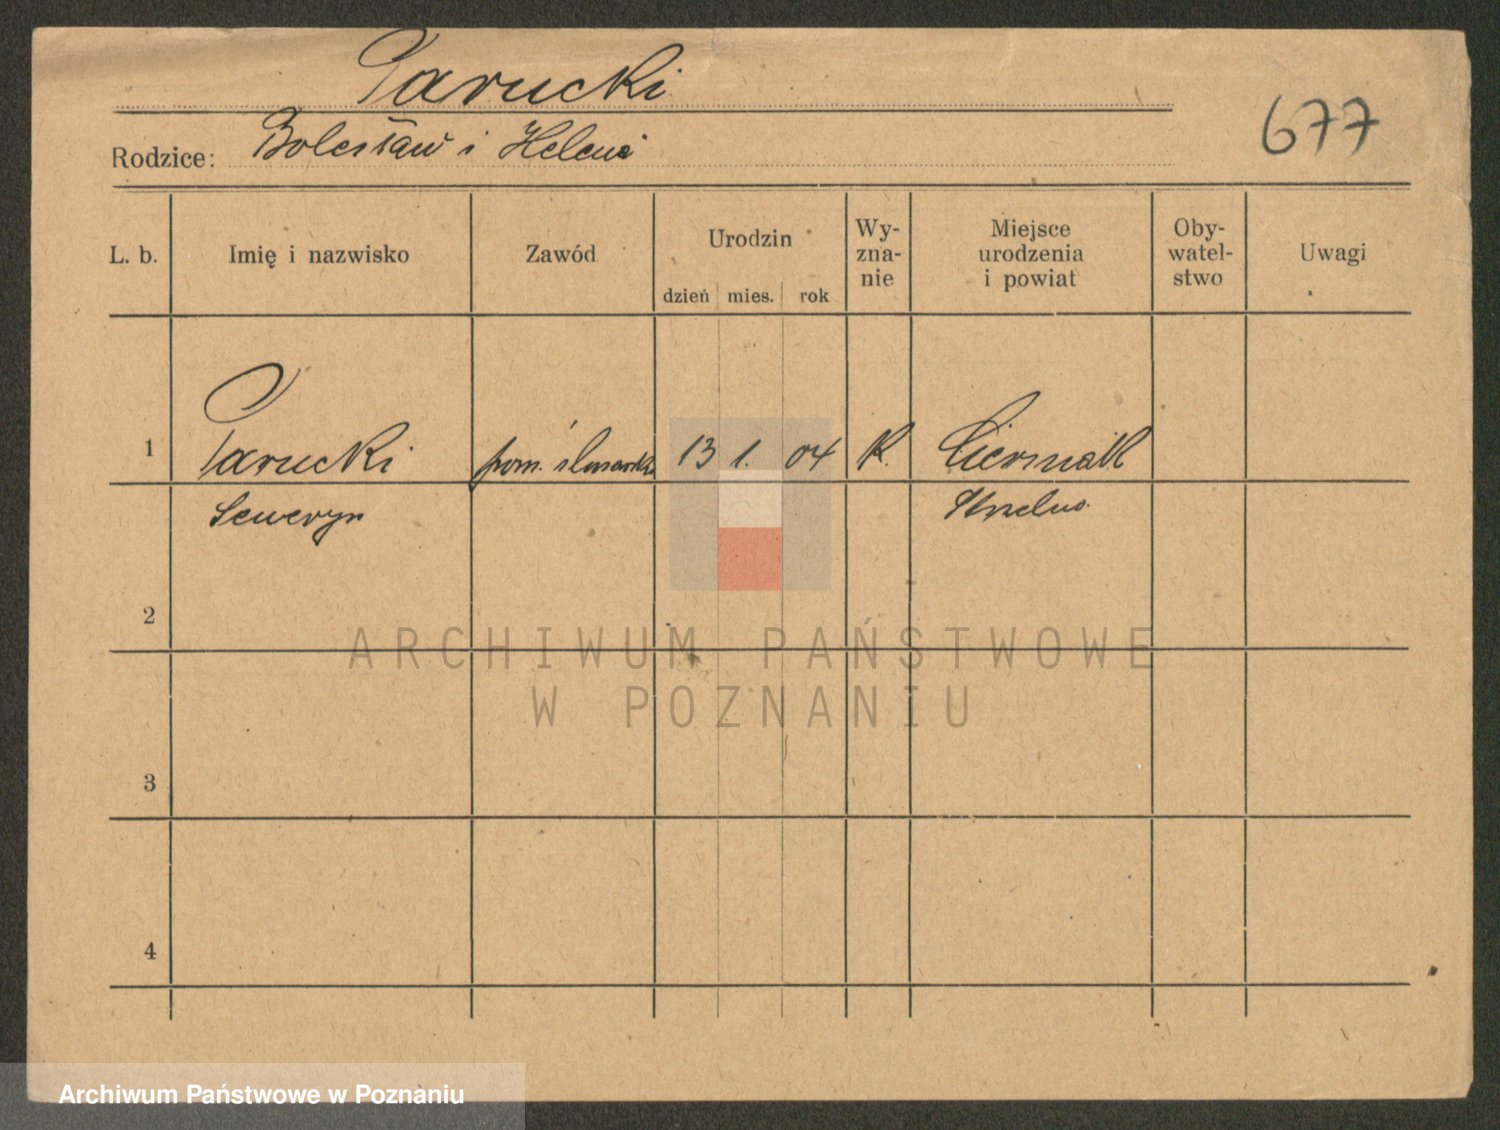 Parucki
677
Rodzice: Bolesław i Helena
L. b. Imię i nazwisko Zawód Urodzin Wy- Miejsce Oby- Uwagi
zna- urodzenia watel-
nie i powiat stwo
dzień mies. rok
1 Parucki pom. ślusarski 13 1. 04 K.
Seweryn Strzelno
2
ARCHIWUM PAŃSTWOWE
W POZNANIU
3
4
Archiwum Państwowe w Poznaniu